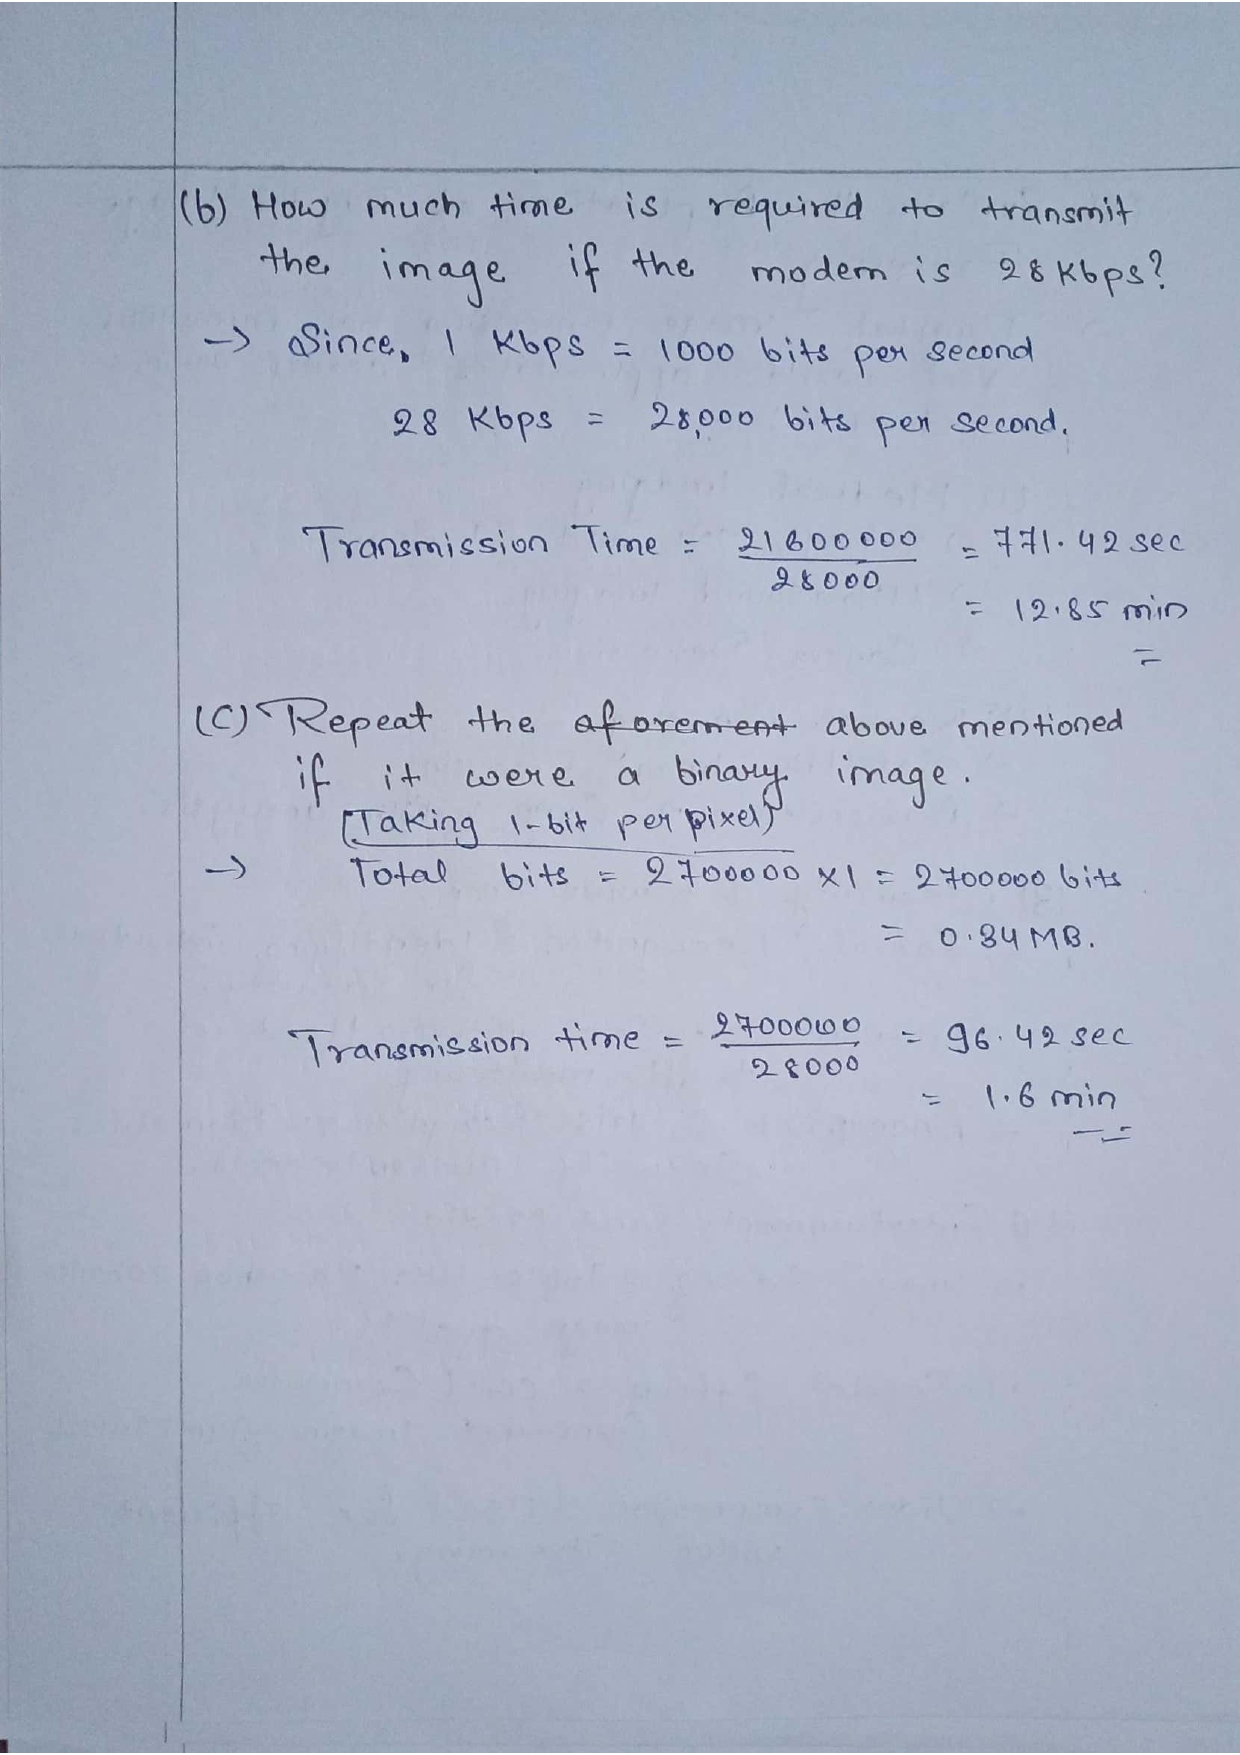 (b) How much time is required to transmit
the image if the modem is 28 Kbps?
→ Since, 1 Kbps = 1000 bits per second
28 Kbps = 28,000 bits per second.
Transmission Time = 21600000 / 28000 = 771.42 sec
= 12.85 min
(C) Repeat the aforement above mentioned
if it were a binary image.
[Taking 1-bit per pixel]
→ Total bits = 2700000 x1 = 2700000 bits
= 0.34 MB.
Transmission time = 2700000 / 28000 = 96.42 sec
= 1.6 min